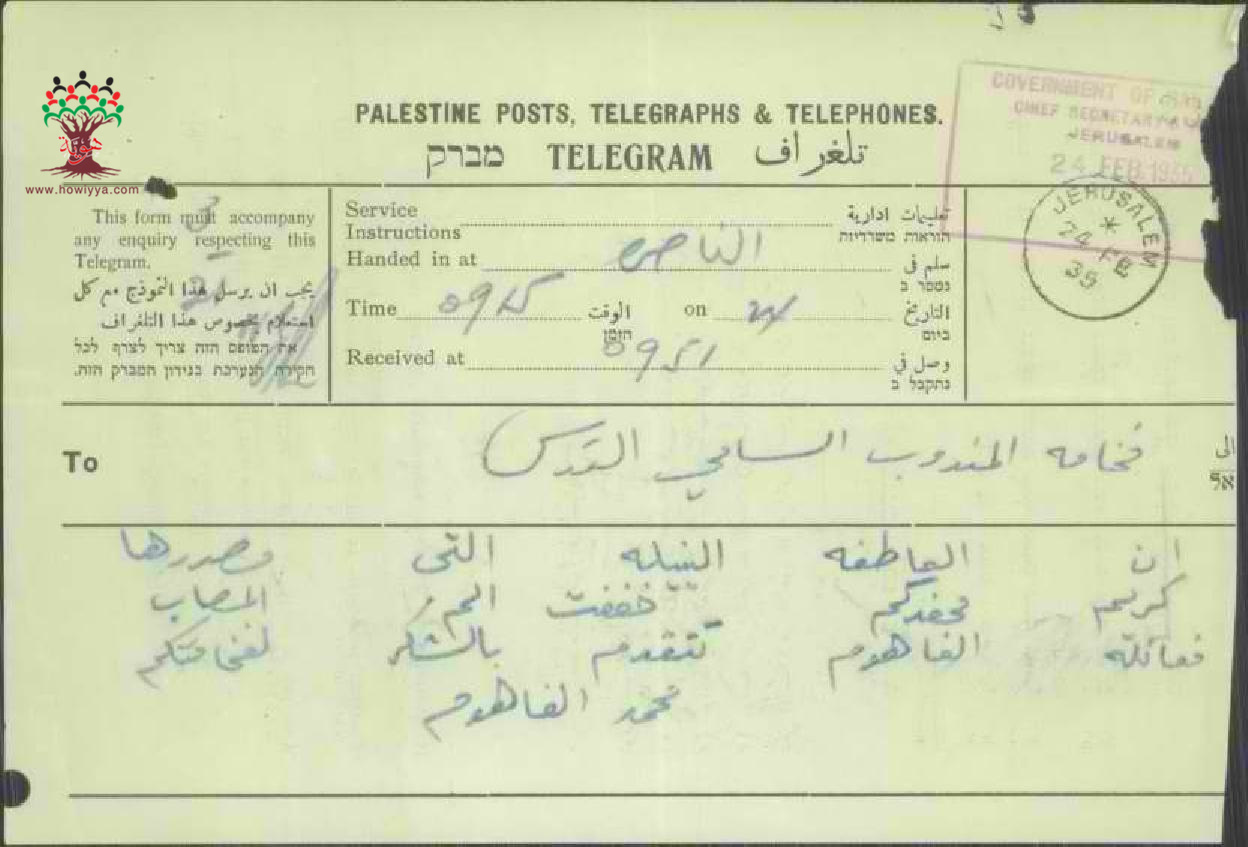 هوية
www.howiyya.com
PALESTINE POSTS, TELEGRAPHS & TELEPHONES.
מברק TELEGRAM تلغراف
GOVERNMENT OF
CHIEF SECRETARY
JERUSALEM
24 FEB 1935
JERUSALEM
24 FE
35
This form must accompany
any enquiry respecting this
Telegram.
يجب ان يرسل هذا النموذج مع كل
استعلام بخصوص هذا التلغراف
את הטופס הזה צריך לצרף לכל
חקירה הנערכת בנידון המברק הזה.
Service
Instructions
تعليمات ادارية
הוראות משרדיות
Handed in at الناصره سلم في
נמסר ב
Time 0925 الوقت הזמן on 24 التاريخ
ביום
Received at 0951 وصل في
נתקבל ב
To فخامه المندوب السامي القدس الى
אל
ان العاطفه النبيله التى مصدرها
كريم خففت المصاب
فعائلة الفاهوم تتقدم بالشكر لفخامتكم
محمد الفاهوم